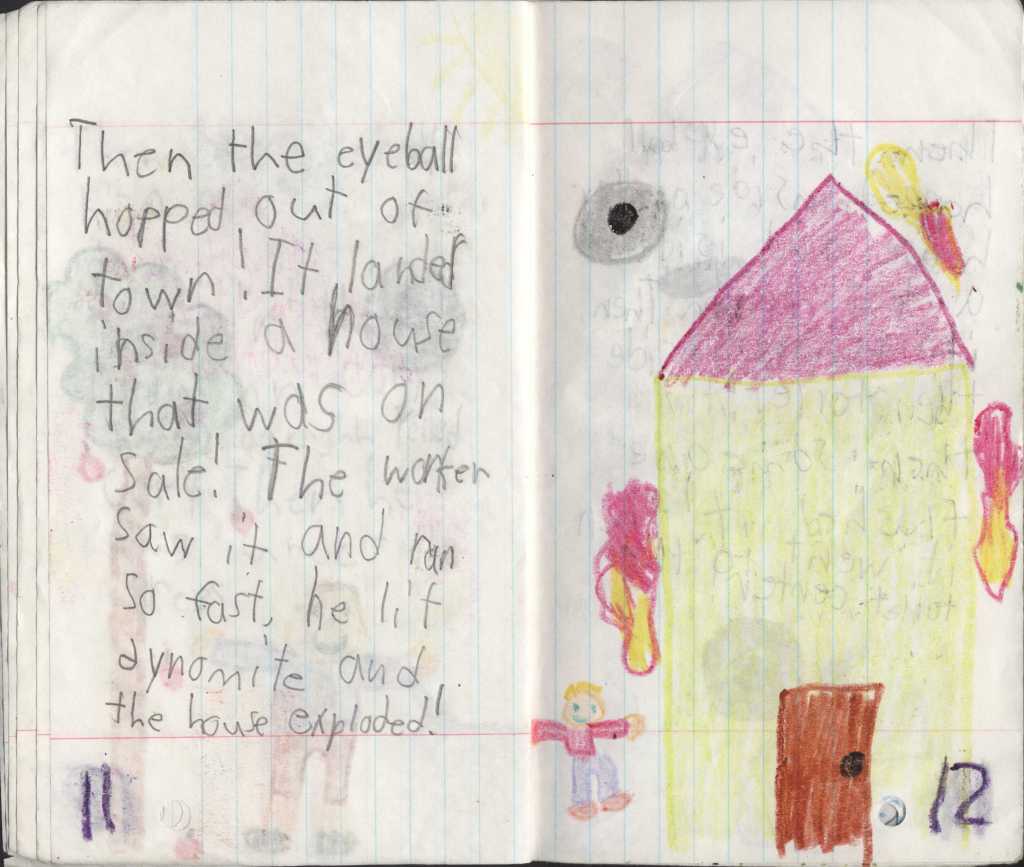 Then the eyeball
hopped out of
town! It landed
inside a house
that was on
sale! The worker
saw it and ran
so fast, he lit
dynomite and
the house exploded!
11
12